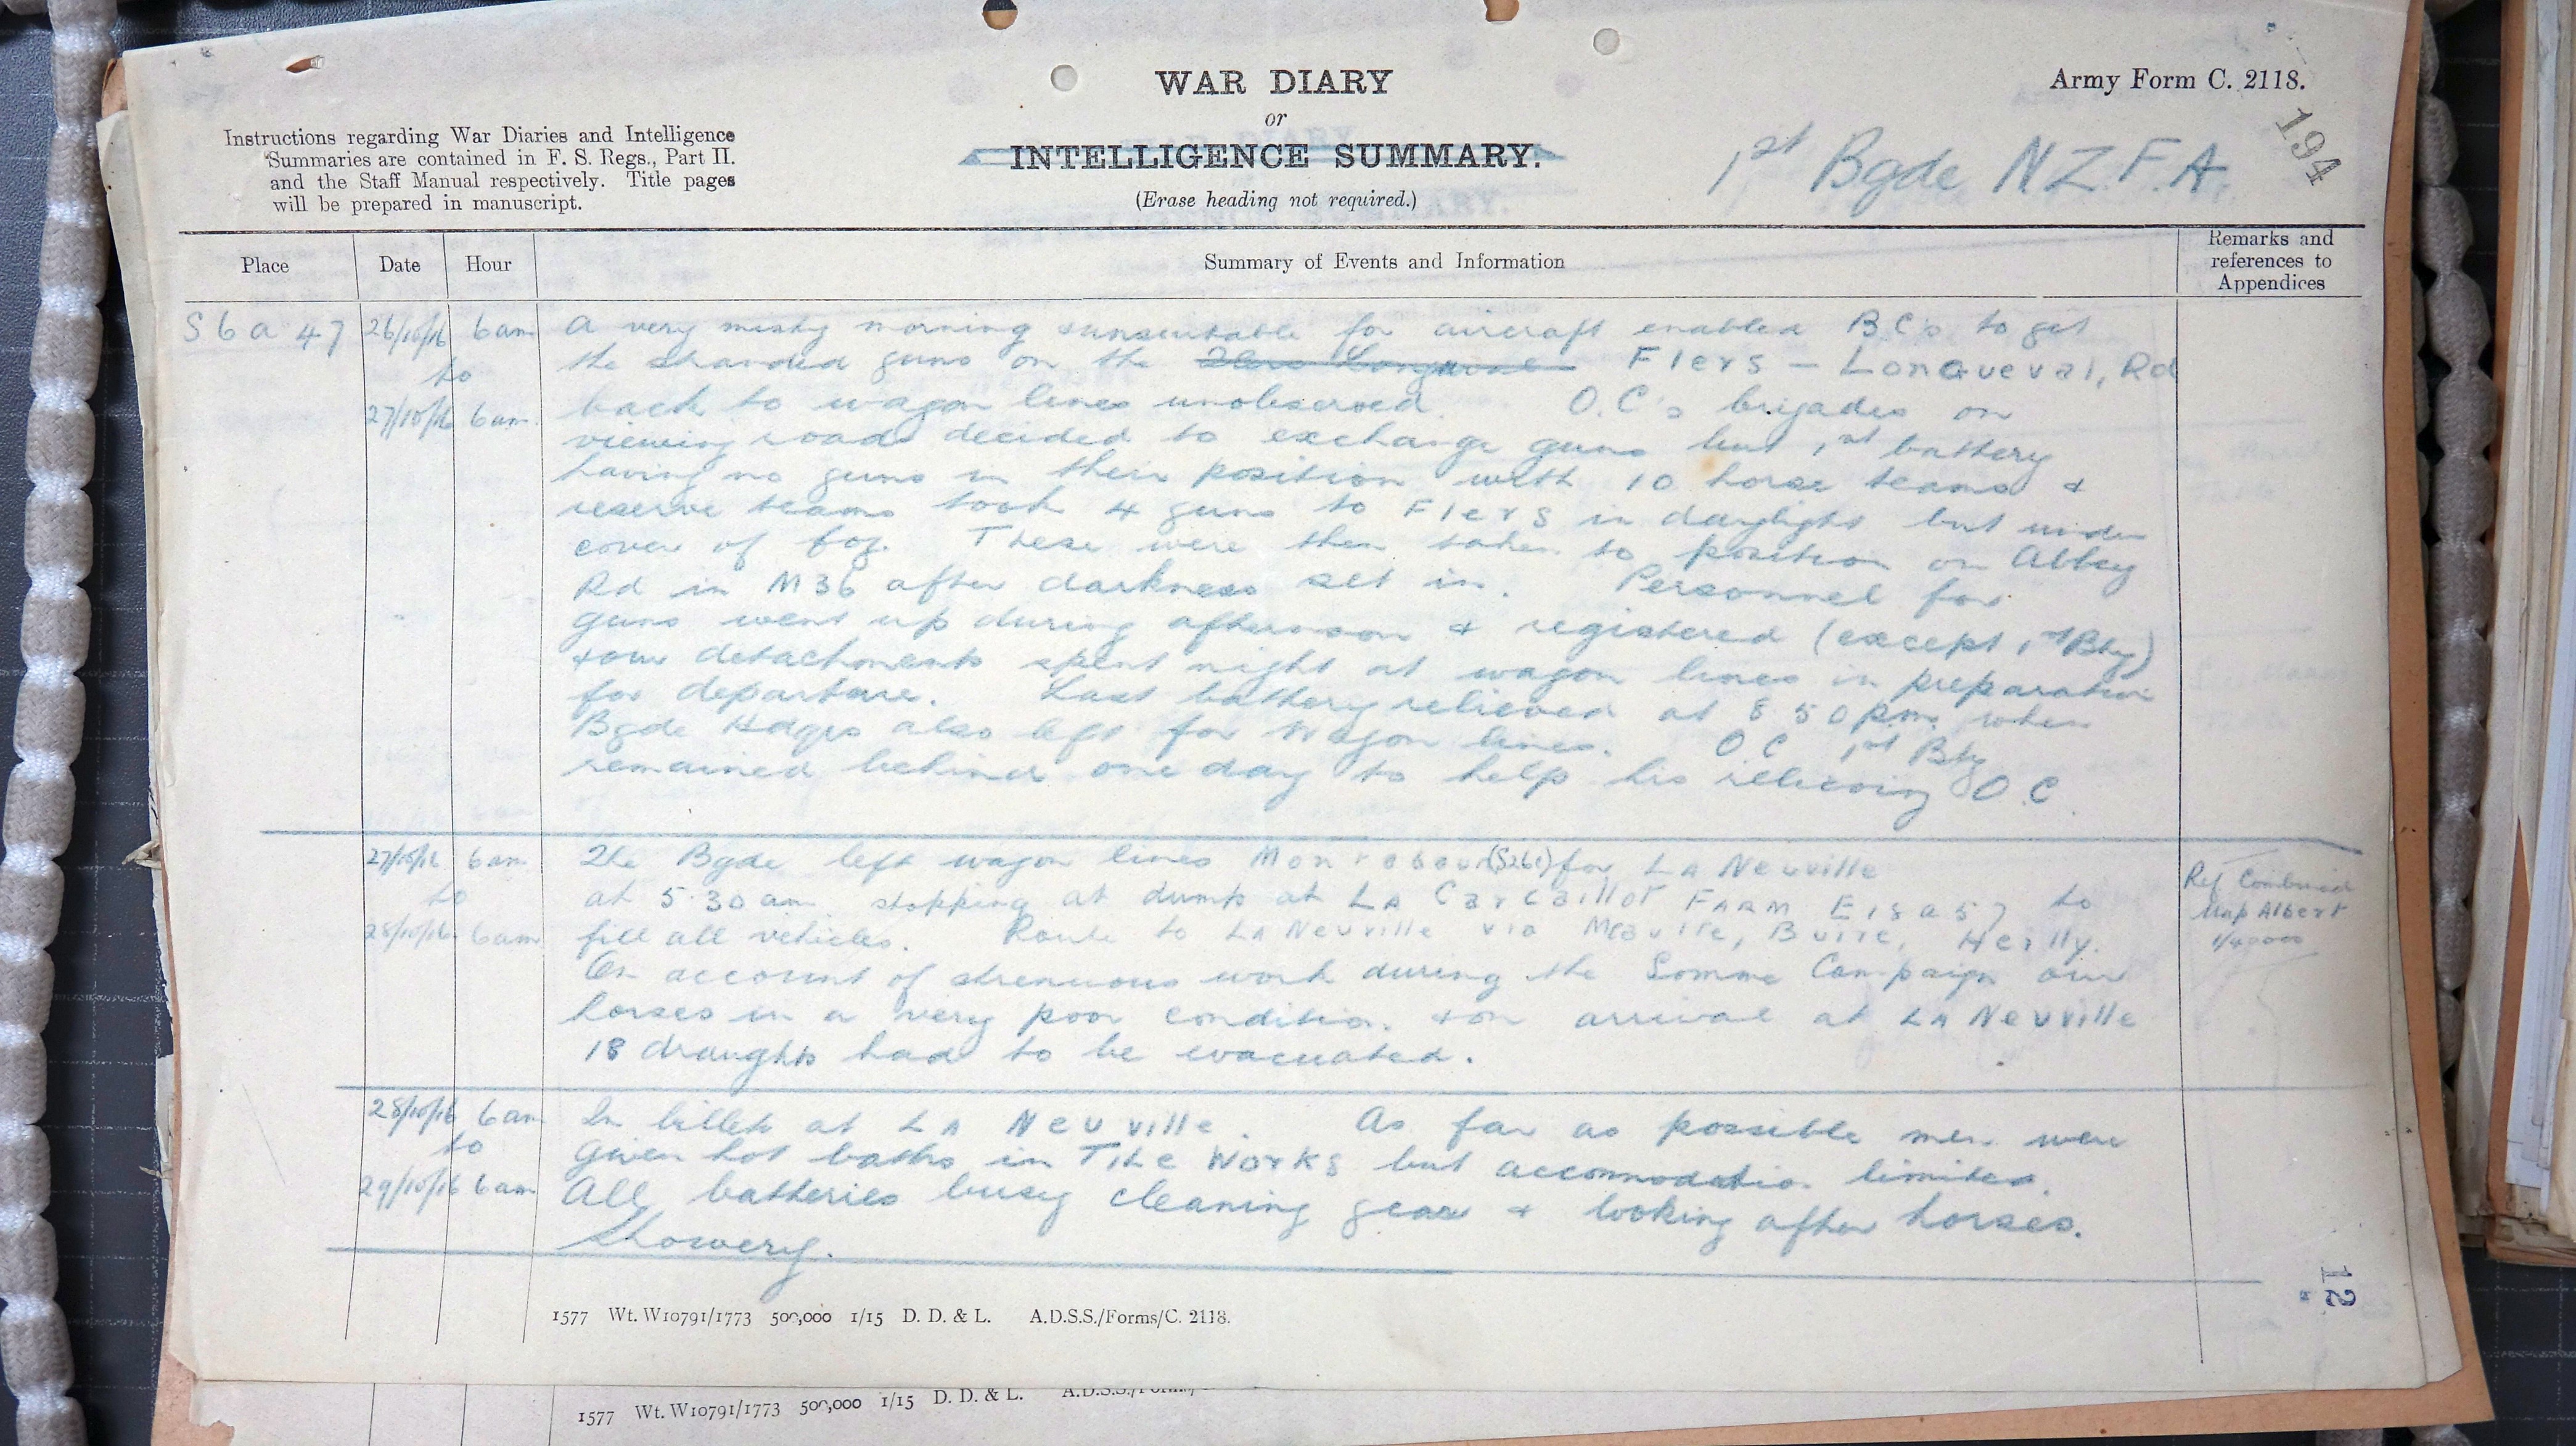 WAR DIARY
or
INTELLIGENCE SUMMARY.
(Erase heading not required.)
Army Form C. 2118.
194
1st Bgde N.Z.F.A.
Instructions regarding War Diaries and Intelligence
Summaries are contained in F. S. Regs., Part II.
and the Staff Manual respectively. Title pages
will be prepared in manuscript.
Place Date Hour Summary of Events and Information Remarks and references to Appendices
S 6 a 47 26/10/16 6am A very misty morning & unsuitable for aircraft enabled B.C's to get
to the stranded guns on the Flers Longueval Flers - Longueval, Rd
27/10/16 6am back to wagon lines unobserved. O.C's brigades on
viewing roads decided to exchange guns but 1st battery
having no guns in their position with 10 horse teams &
reserve teams took 4 guns to Flers in daylight but under
cover of fog. These were then taken to position on Abbey
Rd in M36 after darkness set in. Personnel for
guns went up during afternoon & registered (except 1st Bty)
& our detachments spent night at wagon lines in preparation
for departure. Last battery relieved at 8 50 pm when
Bgde Hdqrs also left for wagon lines. O C 1st Bty
remained behind one day to help his relieving O.C.
27/10/16 6am The Bgde left wagon lines Montauban (S26c) for LA Neuville
to at 5.30 am stopping at dump at LA Carcaillot FARM E18a57 to
28/10/16 6am fill all vehicles. Route to LA Neuville via Meaulte, Buire, Heilly.
On account of strenuous work during the Somme Campaign our
horses in a very poor condition & on arrival at LA Neuville
18 draughts had to be evacuated.
Ref Combined
Map Albert
1/40000
28/10/16 6am In billets at LA Neuville. As far as possible men were
to given hot baths in Tile Works but accommodation limited.
29/10/16 6am All batteries busy cleaning gear & looking after horses.
Showery.
12
1577 Wt. W10791/1773 500,000 1/15 D. D. & L. A.D.S.S./Forms/C. 2118.
1577 Wt. W10791/1773 500,000 1/15 D. D. & L. A.D.S.S./Forms/